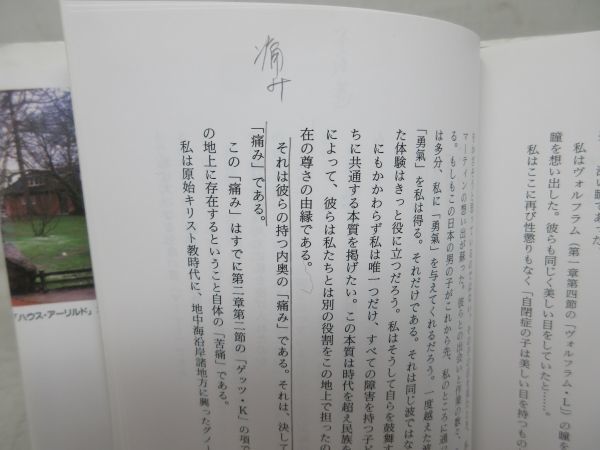 深い瞳であった
私はヴォルフラム（第二章第四節の「ヴォルフラム・L」）の瞳を
瞳を想い出した。彼らも同じく美しい目をしていたと……。
私はここに再び性懲りもなく「自閉症の子は美しい目を持つもの
る。もしもこの日本の男の子がこれから先、私のところに通
は多分、私に「勇氣」を与えてくれるだろう。一度越えた
「勇氣」を私は得る。それだけである。それは同じ波ではな
た体験はきっと役に立つだろう。私はそうして自らを鼓舞す
にもかかわらず私は唯一つだけ、すべての障害を持つ子ど
ちに共通する本質を掲げたい。この本質は時代を超え民族を
によって、彼らは私たちとは別の役割をこの地上で担ったの
在の尊さの由縁である。
それは彼らの持つ内奥の「痛み」である。それは、決して
「痛み」である。
この「痛み」はすでに第二章第二節の「ゲッツ・K」の項で
の地上に存在するということ自体の「苦痛」である。
私は原始キリスト教時代に、地中海沿岸諸地方に興ったグノー
痛み
「ハウス・アーリルド」